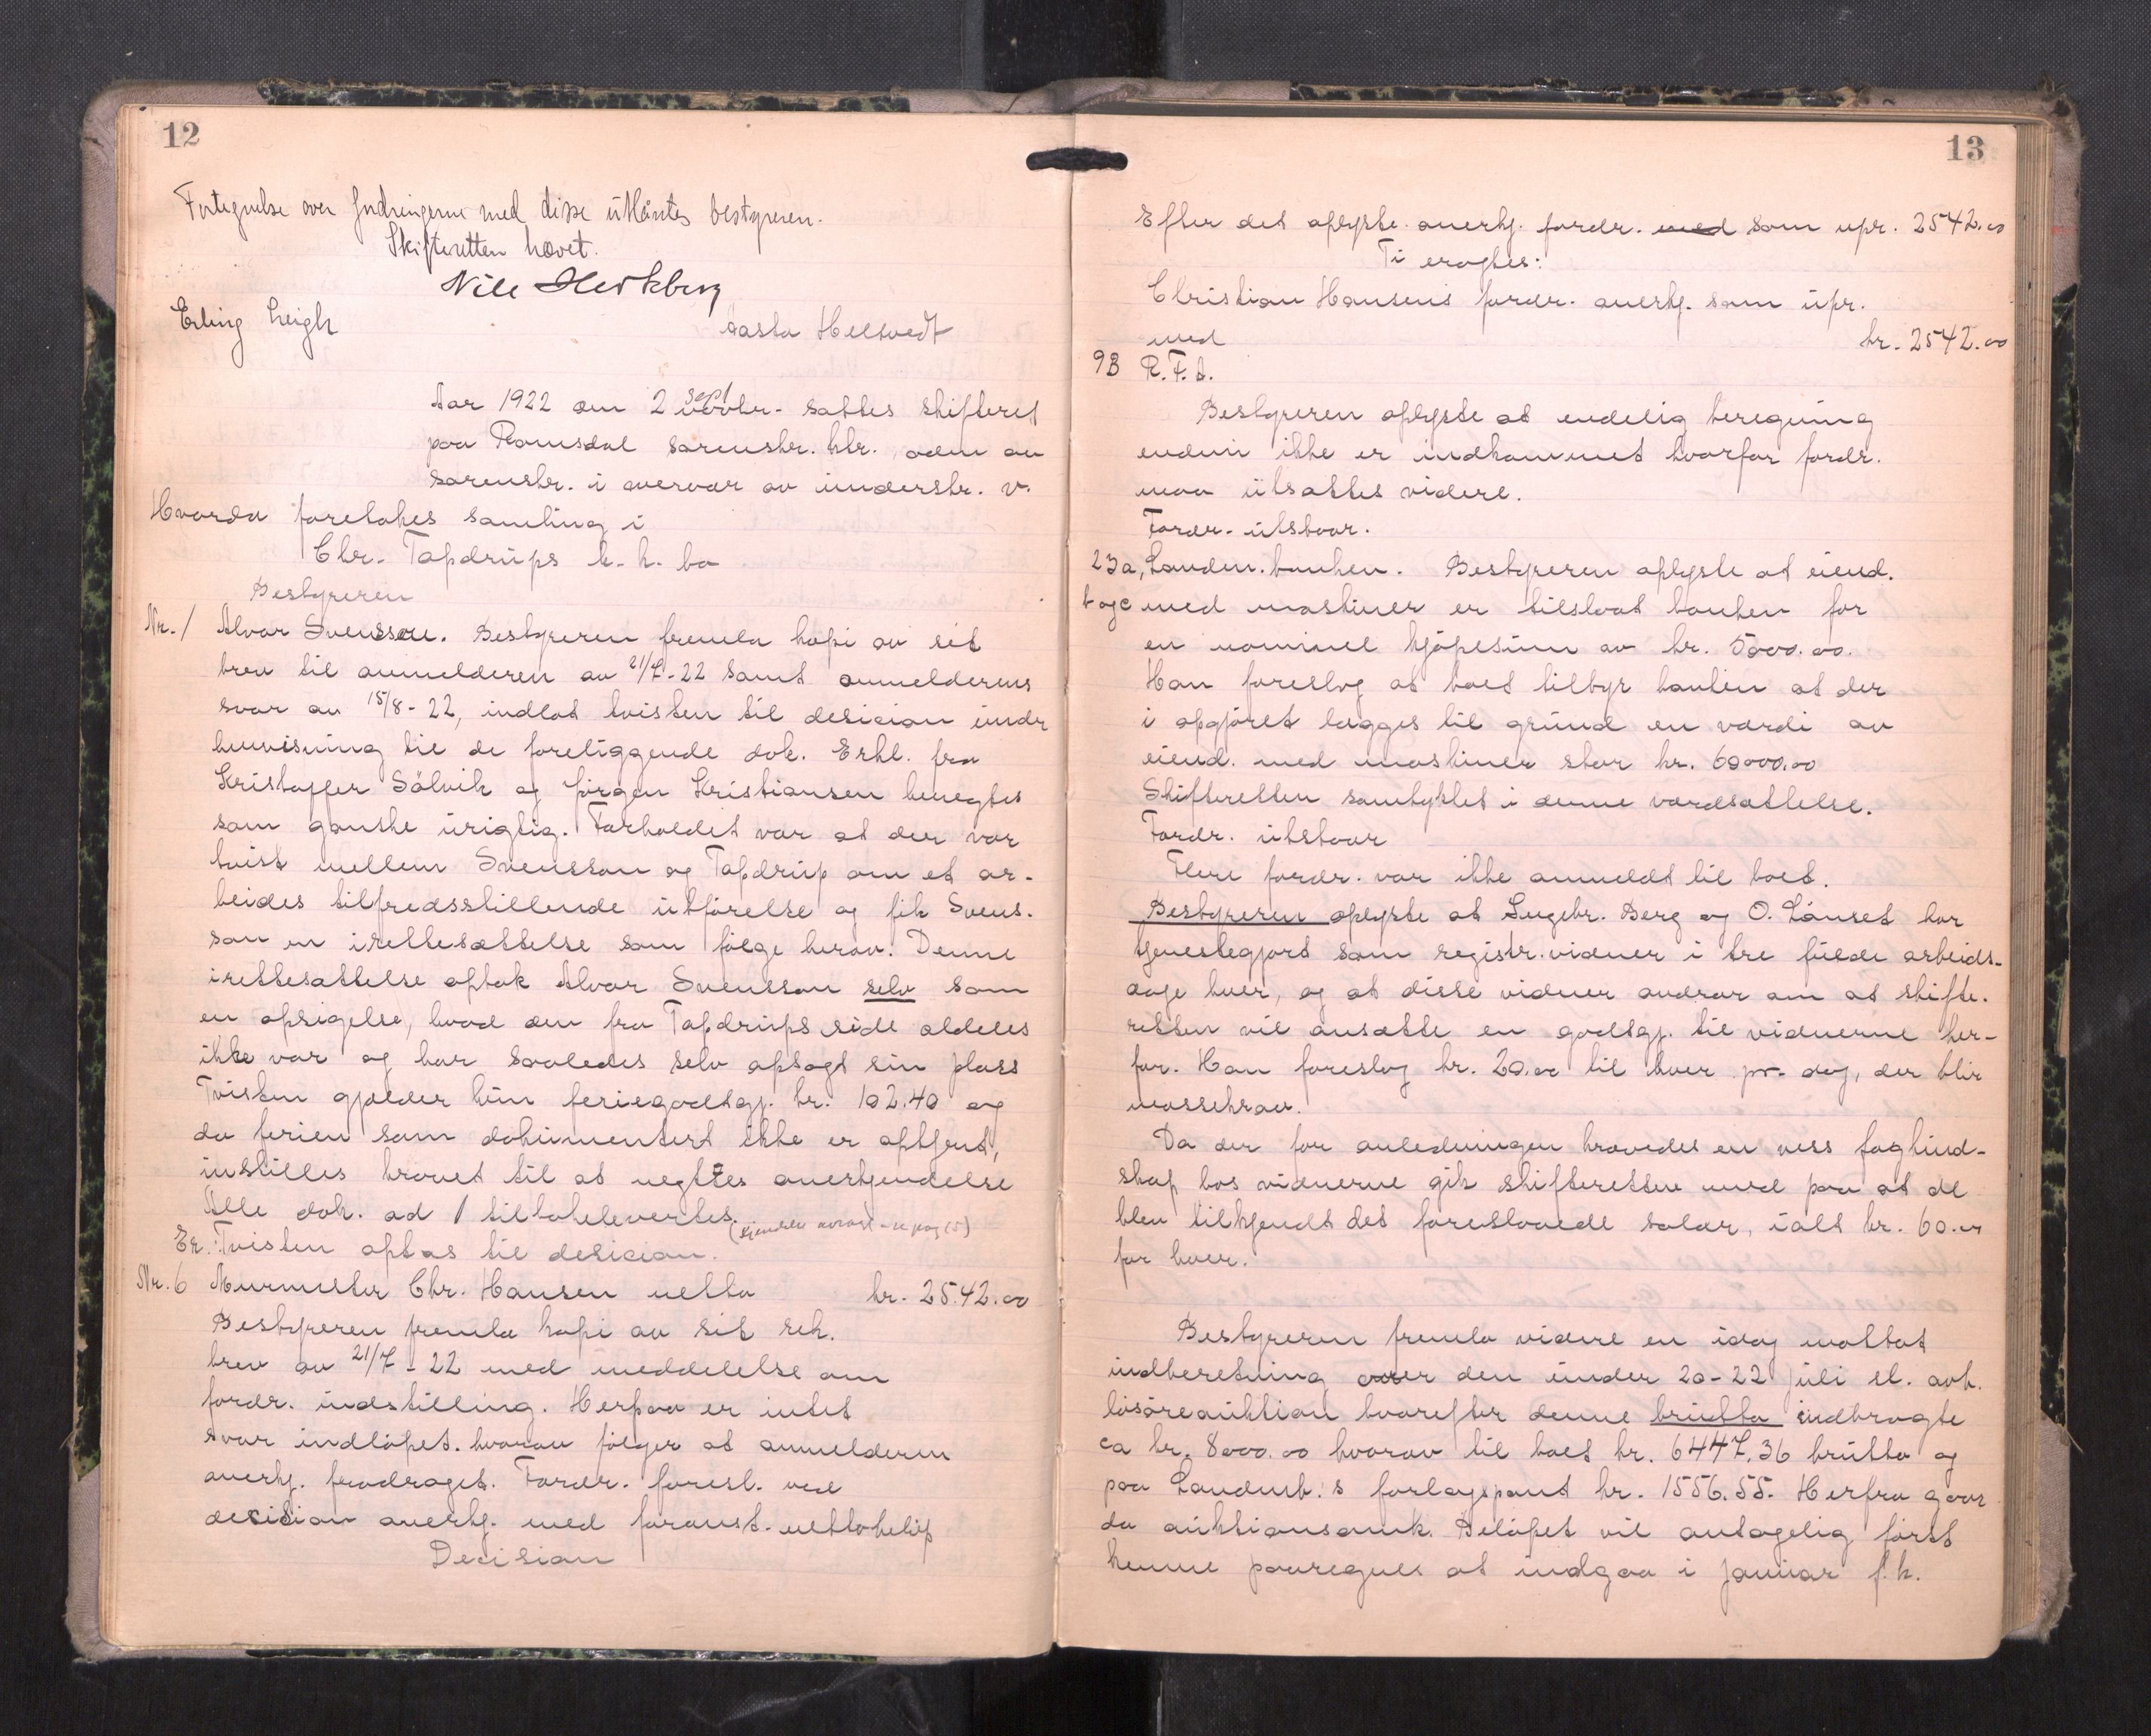 12
Fortegnelse over fordringerne med disse utlaantes bestyreren.
Skifteretten hævet.
Erling Leigh
Aasta Heltvedt
Aar 1922 den 2 sept novbr. sattes skifteret
paa Romsdal sorenskr. ktr. adm av
sorenskr. i overvær av underskr. v.
Hvorda foretokes samling i
Chr. Tapdrups k. k. bo
Bestyreren
Nr. 1 Alvar Svensson. Bestyreren fremla kopi av sit
brev til anmelderen av 21/7-22 samt anmelderens
svar av 15/8-22, indlot tvisten til desision under
henvisning til de foreliggende dok. Erkl. fra
Kristoffer Sölvik og Jörgen Kristiansen benegtes
som ganske urigtig. Forholdet var at der var
tvist mellem Svensson og Tapdrup om et ar-
beides tilfredsstillende utförelse og fik Svens-
son en irettesættelse som fölge herav. Denne
irettesættelse optok Alvar Svensson selv som
en opsigelse, hvad den fra Tapdrups side aldeles
ikke var og har saaledes selv opsagt sin plass
Tvisten gjælder kun feriegodtgj. kr. 102.40 og
da ferien som dokumentert ikke er optjent,
instilles kravet til at negtes anerkjendelse
Alle dok. ad 1 tilbakelevertes.
Er. Tvisten optas til desision.
Nr. 6 Murmester Chr. Hansen netto kr. 2542.00
Bestyreren fremla kopi av sit rek.
brev av 21/7-22 med meddelelse om
fordr. indstilling. Herpaa er intet
svar indlöpet. hvorav fölger at anmelderen
anerkj. fradraget. Fordr. foresl. ved
desision anerkj. med foranst. nettobelöp
Decision
13
Efter det oplyste anerkj. fordr. med som upr. 2542.00
Ti eragtes:
Christian Hansens fordr. anerkj. som upr.
med kr. 2542.00
9B R.F.A.
Bestyreren oplyste at endelig beregning
endnu ikke er indkommet hvorfor fordr.
maa utsættes videre.
Fordr. utstaar.
23a, Landm.banken. Bestyreren oplyste at eiend.
b og c med maskiner er tilslaat banken for
en nominel kjöpesum av kr. 5000.00.
Han foreslog at boet tilbyr banken at der
i opgjöret lægges til grund en værdi av
eiend. med maskiner stor kr. 60000.00
Skifteretten samtykket i denne værdsættelse.
Fordr. utstaar
Flere fordr. var ikke anmeldt til boet.
Bestyreren oplyste at Ingebr. Berg og O. Lånset har
tjenestegjort som registr. vidner i tre fulde arbeids-
dage hver, og at disse vidner andrar om at skifte-
retten vil ansætte en godtgj. til vidnerne her-
for. Han foreslog kr. 20.00 til hver pr. dag, der blir
massekrav.
Da der for anledningen krævedes en viss fagkund-
skap hos vidnerne gik skifteretten med paa at de
blev tilkjendt det foreslaaede salær, ialt kr. 60.00
for hver.
Bestyreren fremla videre en idag mottat
indberetning over den under 20-22 juli d. avh.
lösöreauktion hvorefter denne brutto indbragte
ca kr. 8000.00 hvorav til boet kr. 6447.36 brutto og
paa Landmb.'s forlagspant kr. 1556.55. Herfra gaar
da auktionsomk. Belöpet vil antagelig först
kunne paaregnes at indgaa i januar f.k.